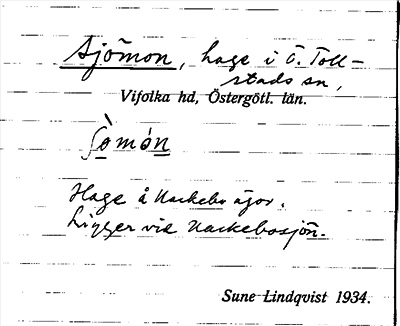 Sjömon, hage i Ö. Toll-
stads sn,
Vifolka hd, Östergötl. län.
ʃòmón
Hage å Nackebo ägor.
Ligger vid Nackebosjön.
Sune Lindqvist 1934.